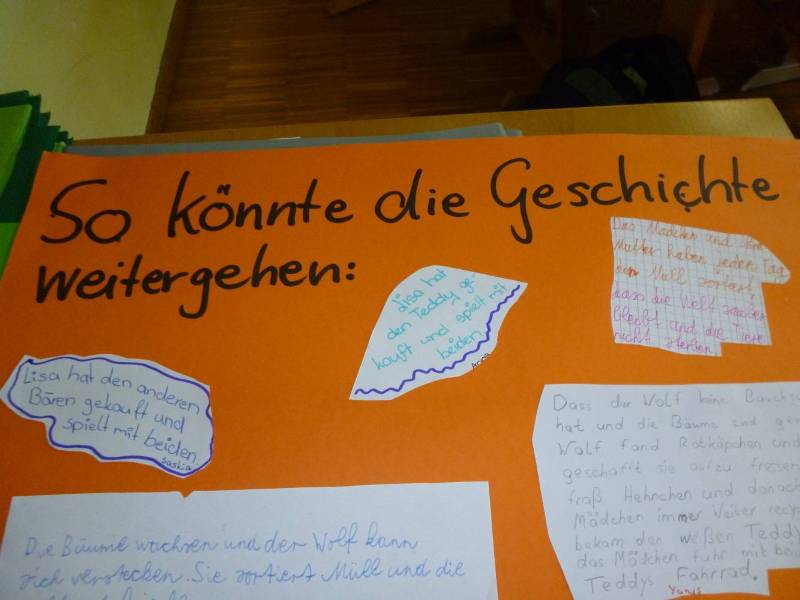 So könnte die Geschichte
weitergehen:
Lisa hat den anderen
Bären gekauft und
spielt mit beiden.
Saskia
Lisa hat
den Teddy ge-
kauft und spielt mit
beiden.
Anna
Das Mädchen und ihre
Mutter haben jeden Tag
den Müll sortiert,
dass die Welt sauber
bleibt und die Tiere
nicht sterben.
Dass der Wolf keine
hat und die Bäume sind
Wolf fand Rotkäpchen und
geschafft sie aufzu fressen
fraß Hehnchen und danach
Mädchen immer Weiter
bekam den weißen Teddy
das Mädchen fuhr mit
Teddys Fahrrad.
Yunus
Die Bäume wachsen und der Wolf kann
sich verstecken. Sie sortiert Müll und die